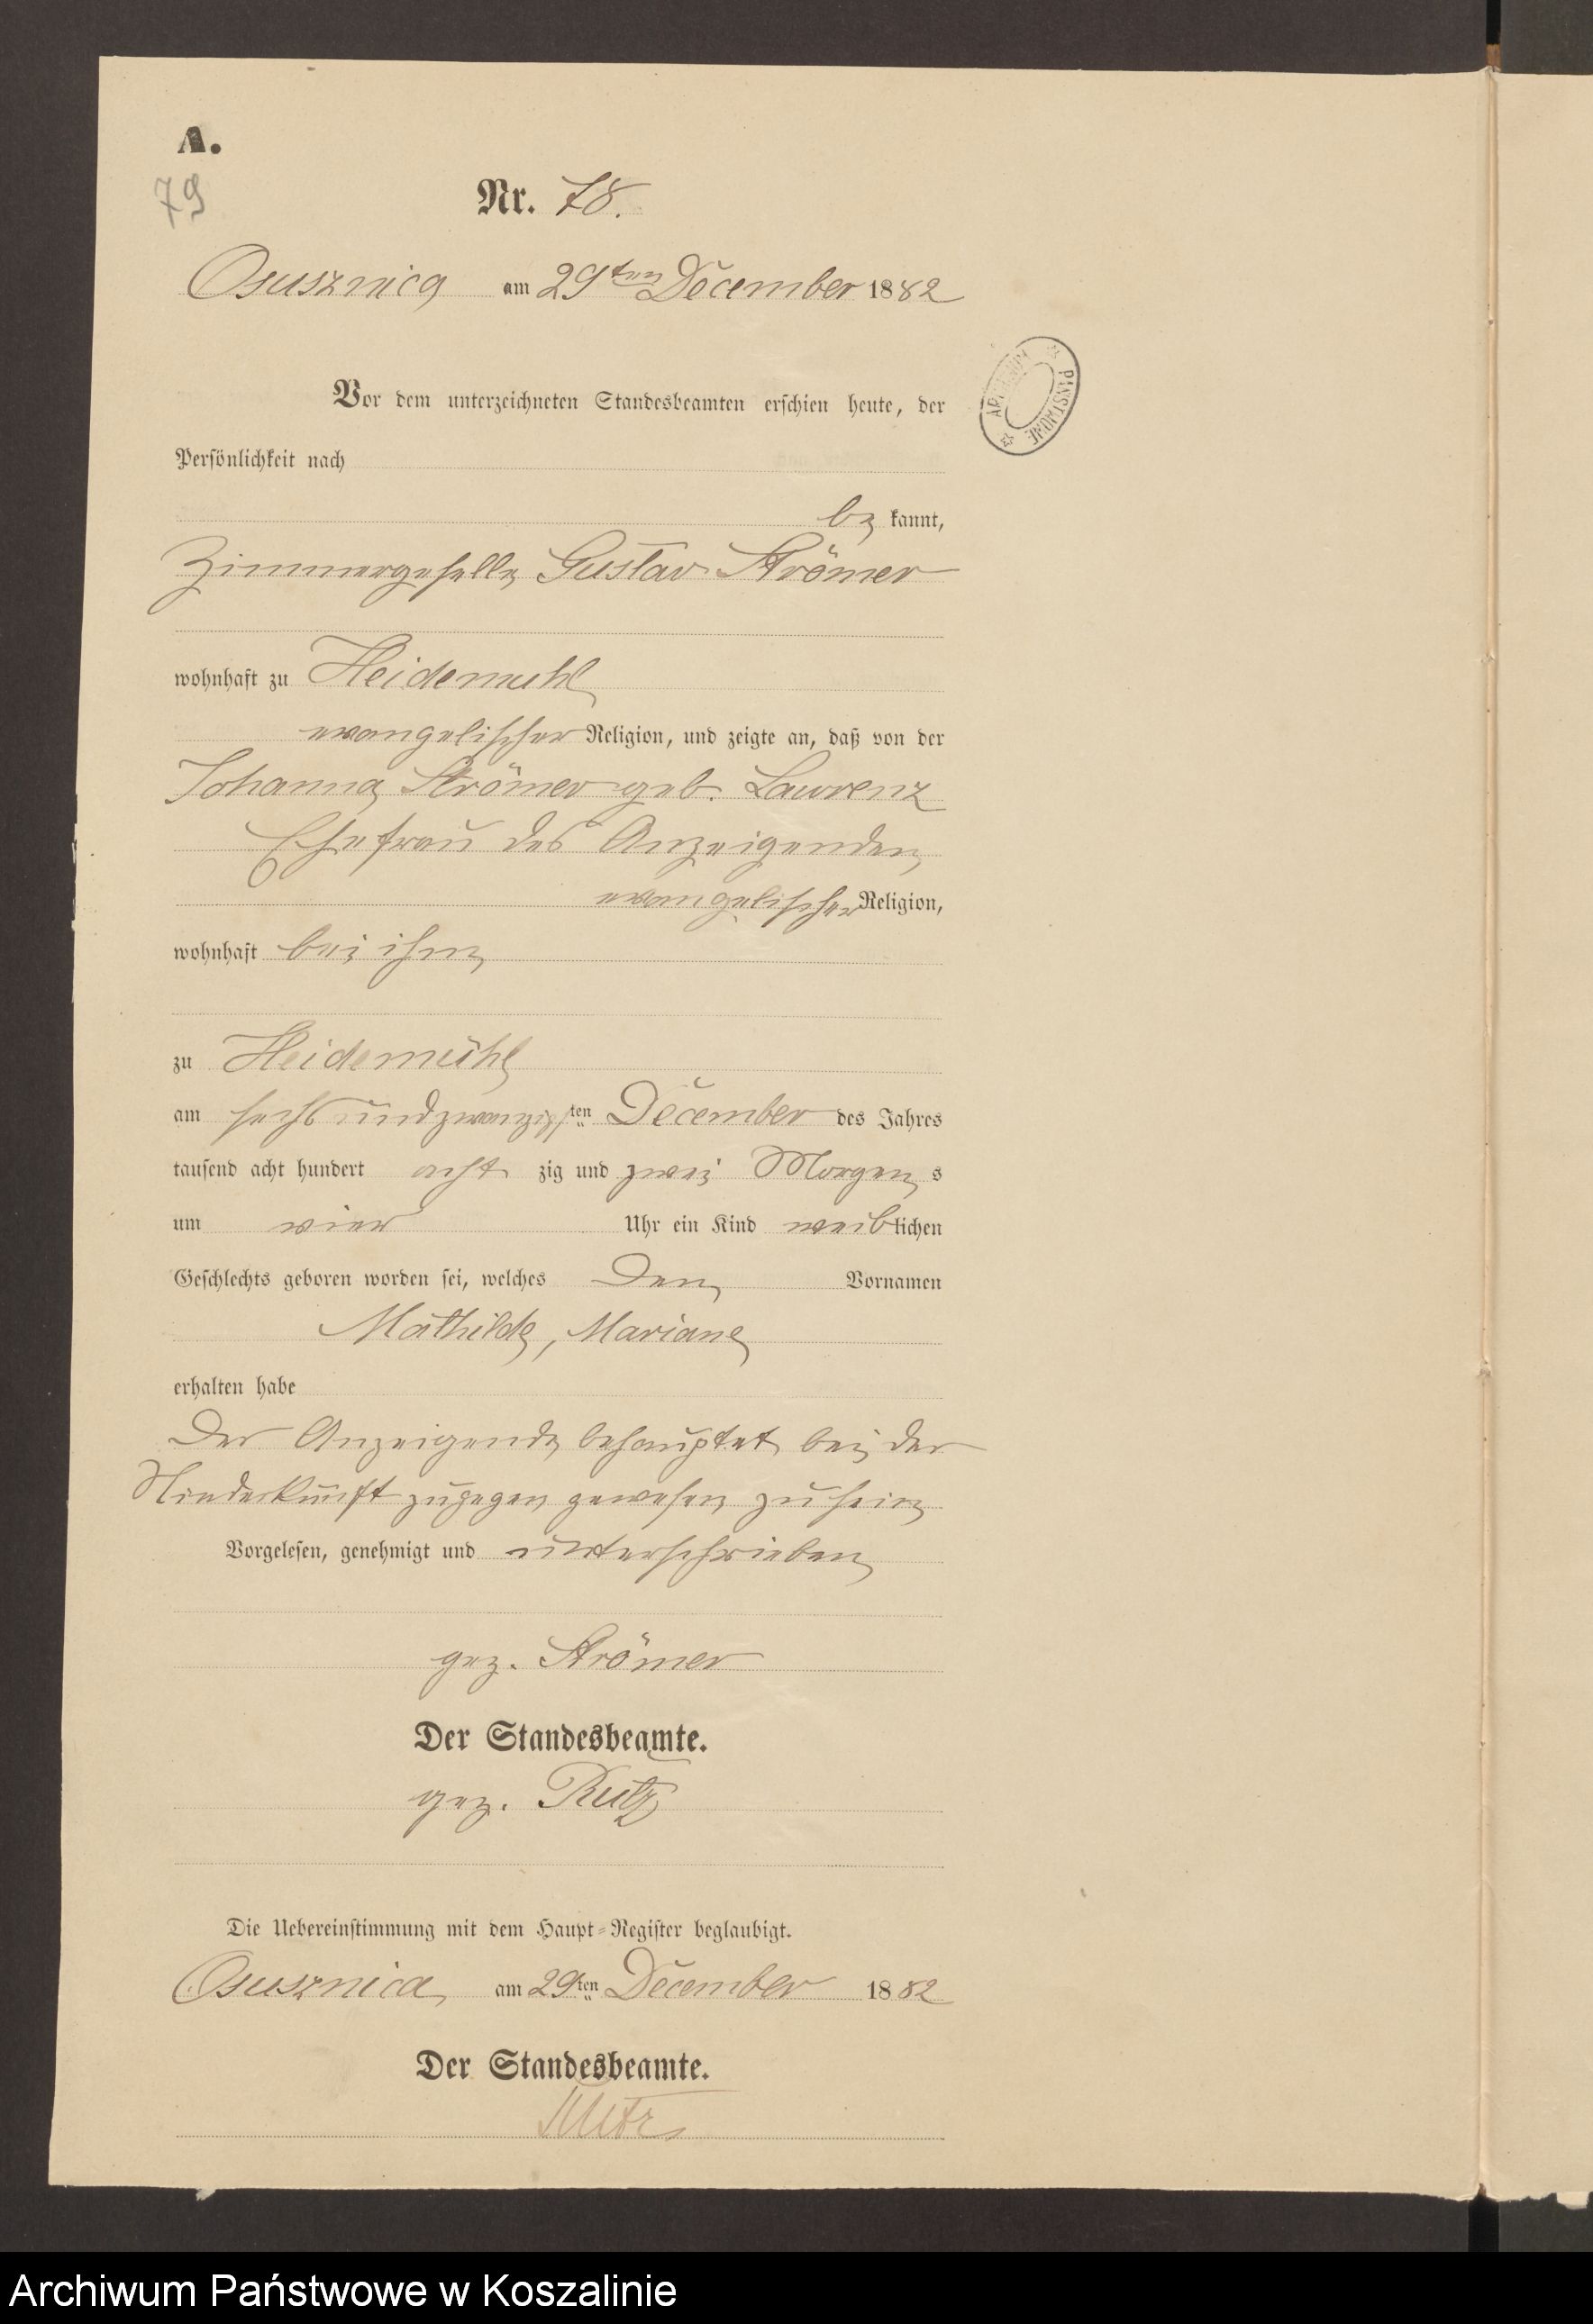 A.
79
Nr. 78.
Osusznica am 29ten December 1882
ARCHIWUM PAŃSTWOWE
Vor dem unterzeichneten Standesbeamten erschien heute, der
Persönlichkeit nach
be kannt,
Zimmergeselle Gustav Strömer
wohnhaft zu Heidemuhl
evangelischer Religion, und zeigte an, daß von der
Johanna Strömer geb. Lawrenz
Ehefrau des Anzeigenden
evangelischer Religion,
wohnhaft bei ihm
zu Heidemühl
am sechsundzwanzigsten December des Jahres
tausend acht hundert acht zig und zwei Morgens
um vier Uhr ein Kind weiblichen
Geschlechts geboren worden sei, welches den Vornamen
Mathilde, Mariane
erhalten habe
Der Anzeigende behauptet bei der
Niederkunft zugegen gewesen zu sein
Vorgelesen, genehmigt und unterschrieben
gez. Strömer
Der Standesbeamte.
gez. Rutz
Die Uebereinstimmung mit dem Haupt-Register beglaubigt.
Osusznica am 29ten December 1882
Der Standesbeamte.
Rutz
Archiwum Państwowe w Koszalinie